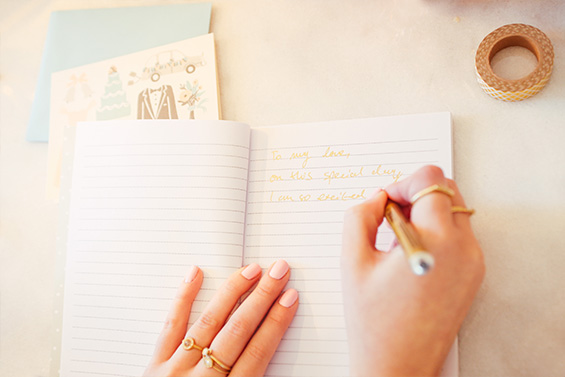 To my love,
on this special day,
I am so excited